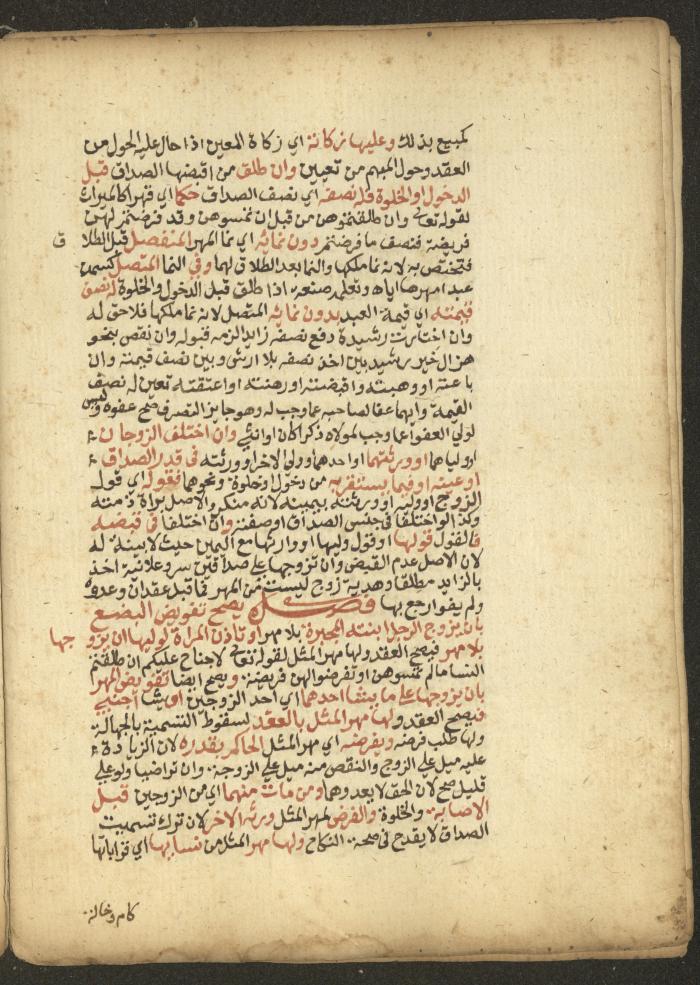 كمبيع بذلك وعليها زكاته اي زكاة المعين اذا حال عليه الحول من
العقد وحول المبهم من تعيين وان طلق من اقبضها الصداق قبل
الدخول او الخلوة فله نصفه اي نصف الصداق حكما اي قهرا كالميراث
لقوله تعالى وان طلقتموهن من قبل ان تمسوهن وقد فرضتم لهن
فريضة فنصف ما فرضتم دون نمائه اي نما المهر المنفصل قبل الطلا ق
فتختص به لانه نما ملكها والنما بعد الطلاق لهما وفي النما المتصل كسمن
عبد امهرها اياه وتعلمه صنعة اذا طلق قبل الدخول والخلوة له نصف
قيمته اي قيمة العبد بدون نمائه المتصل لانه نما ملكها فلا حق له
وان اختارت رشيدة دفع نصفه زايدا لزمه قبوله وان نقص بنحو
هزال خير رشيد بين اخذ نصفه بلا ارش وبين نصف قيمته وان
باعته او وهبته واقبضته او رهنته او اعتقته تعين له نصف
القيمة وايهما عفا لصاحبه عما وجب له وهو جايز التصرف صح عفوه وليس
لولي العفو عما وجب لمولاه ذكرا كان او انثى وان اختلف الزوجان
او ولياهما او ورثتهما او احدهما وولي الاخر او ورثته في قدر الصداق
او عينه او فيما يستقر به من دخول او خلوة ونحوهما فقوله اي قول
الزوج او وليه او ورثته بيمينه لانه منكر والاصل براة ذمته
وكذا لو اختلفا في جنس الصداق او صفته وان اختلفا في قبضه
فالقول قولها او قول وليها او وارثها مع اليمين حيث لا بينة له
لان الاصل عدم القبض وان تزوجها على صداقين سر وعلانية اخذ
بالزايد مطلقا وهدية زوج ليست من المهر فما قبل عقد ان وعدوه
ولم يفوا رجع بها فصل يصح تفويض البضع
بان يزوج الرجل ابنته المجبرة بلا مهر او تاذن المراة لوليها ان يزو جها
بلا مهر فيصح العقد ولها مهر المثل لقوله تعالى لا جناح عليكم ان طلقتم
النسا ما لم تمسوهن او تفرضوا لهن فريضة ويصح ايضا تفويض المهر
بان يزوجها على ما يشا احدهما اي احد الزوجين او يشا اجنبي
فيصح العقد ولها مهر المثل بالعقد لسقوط التسمية بالجهالة
ولها طلب فرضه ويفرضه اي مهر المثل الحاكم بقدره لان الزيادة
عليه ميل على الزوج والنقص منه ميل على الزوجة وان تراضيا ولو على
قليل صح لان الحق لا يعدوهما ومن مات منهما اي من الزوجين قبل
الاصابة والخلوة والفرض لمهر المثل ورثه الاخر لان ترك تسميت
الصداق لا يقدح في صحة النكاح ولها مهر المثل من نسايها اي قراباتها
كام وخالة